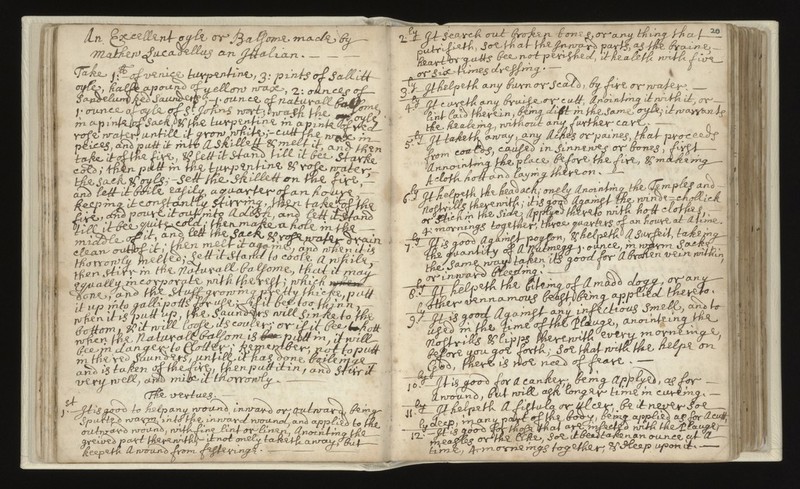 An Excellent oyle or Balsome made by
Mathew Lucadellus an Ittalian.
Take 1:li of venice turpentine, 3: pints of Sallitt
oyle, halfe a pound of yellow wax, 2: ounces of
Sandelum Red Saunders 1: ounce of naturall balsome,
1: ounce of oyle of St Johns wort; wash the oyle
in a pinte of Sack, & the turpentine in a pinte of red
rose water, untill it grow white; cutt the wax in
peices, and putt it into a Skillett & melt it, and then
take it of the fire, & lett it stand till it bee Starke
cold; then putt in the turpentine & rose water,
the Sack & oyle; Sett the Skillett on the fire,
and lett it boile easily, a quarter of an houre
keeping it constantly stirring, then take of the
fire, and poure it out into a dish, and lett it stand
till it bee quite cold, then make a hole in the
middle of it, and lett the Sack & rose water drain
clean out of it; then melt it againe, and when it is
thorrowly melted, Lett it stand to coole a while,
then stirr in the Naturall balsome, that it may
equally incorporate with the rest; which
done, and the Stuff growing prety thicke, putt
it up into galli potts for use; if it bee too thinn
when it is putt up, the Saunders will sinke to the
bottom, & it will loose its couler; or if it bee to hott
when the Naturall balsom is putt in, it will
bee in danger to Clotter; remember, not to putt
in the red Saunders, untill it has done boileinge
and is taken of the fire, then putt it in, and stirr it
very well, and mixe it thorrowly.
The vertues
1st It is good to help any wound, inward or outward, being
Squirted warm into the inward wound, and applyed to the
outward wound, with fine lint or linen, Anointing the
greived part therewith; it not onely taketh away, but
keepeth A wound from festering.
20
2ly It Search out broken bones, or any thing that
putrifieth, Soe that the Inward parts, as the braine,
heart or gutts bee not perished, it healeth with five
or Six times dressing.
3ly It helpeth any burn or Scald, by fire or water.
4ly It cureth any bruise or cutt, Anointing it with it, or
lint laid therein, being dipt in the Same oyle; it warrants
the healeing, without any further care.
5ly It taketh away, any Aches or paines, that proceeds
from coalds, caused in Sinnewes or bones, first
Annointing the place before the fire, & making
A cloth hott and laying thereon.
6ly It helpeth the headach; onely Anointing the Temples and
Nostrills therewith; it is good Against the winde-chollick
or Stich in the Side, Applyed thereto with hott clothes,
4: mornings together, three quarters of an houre at A time.
7ly It is good Against poyson, & helpeth A Surfeit, takeing
the quantity of A Nutmegg 1. ounce, in warm Sack;
the Same way taken its good for A broken vein within,
or inward bleeding.
8ly It helpeth the biteing of A madd dogg, or any
other vennamous beast being applied thereto.
9ly It is good Against any infectious Smell, and to
used in the time of the Plauge, anointing the
Nostrills & lipps therewith every morneinge,
before you goe forth, Soe that with the helpe on
God, there is not need of feare.
10ly It is good for A canker, being Applyed, as for
A wound, but will ask longer time in cureing.
11ly It helpeth A fistula or ulcer, be it never Soe
deep, in any part of the body, being applied as for A cutt.
12ly It is good for those that are infected with the Plauge
measles or the like, Soe it bee taken an ounce at A
time, 4: morneings together, & Sleep upon it.